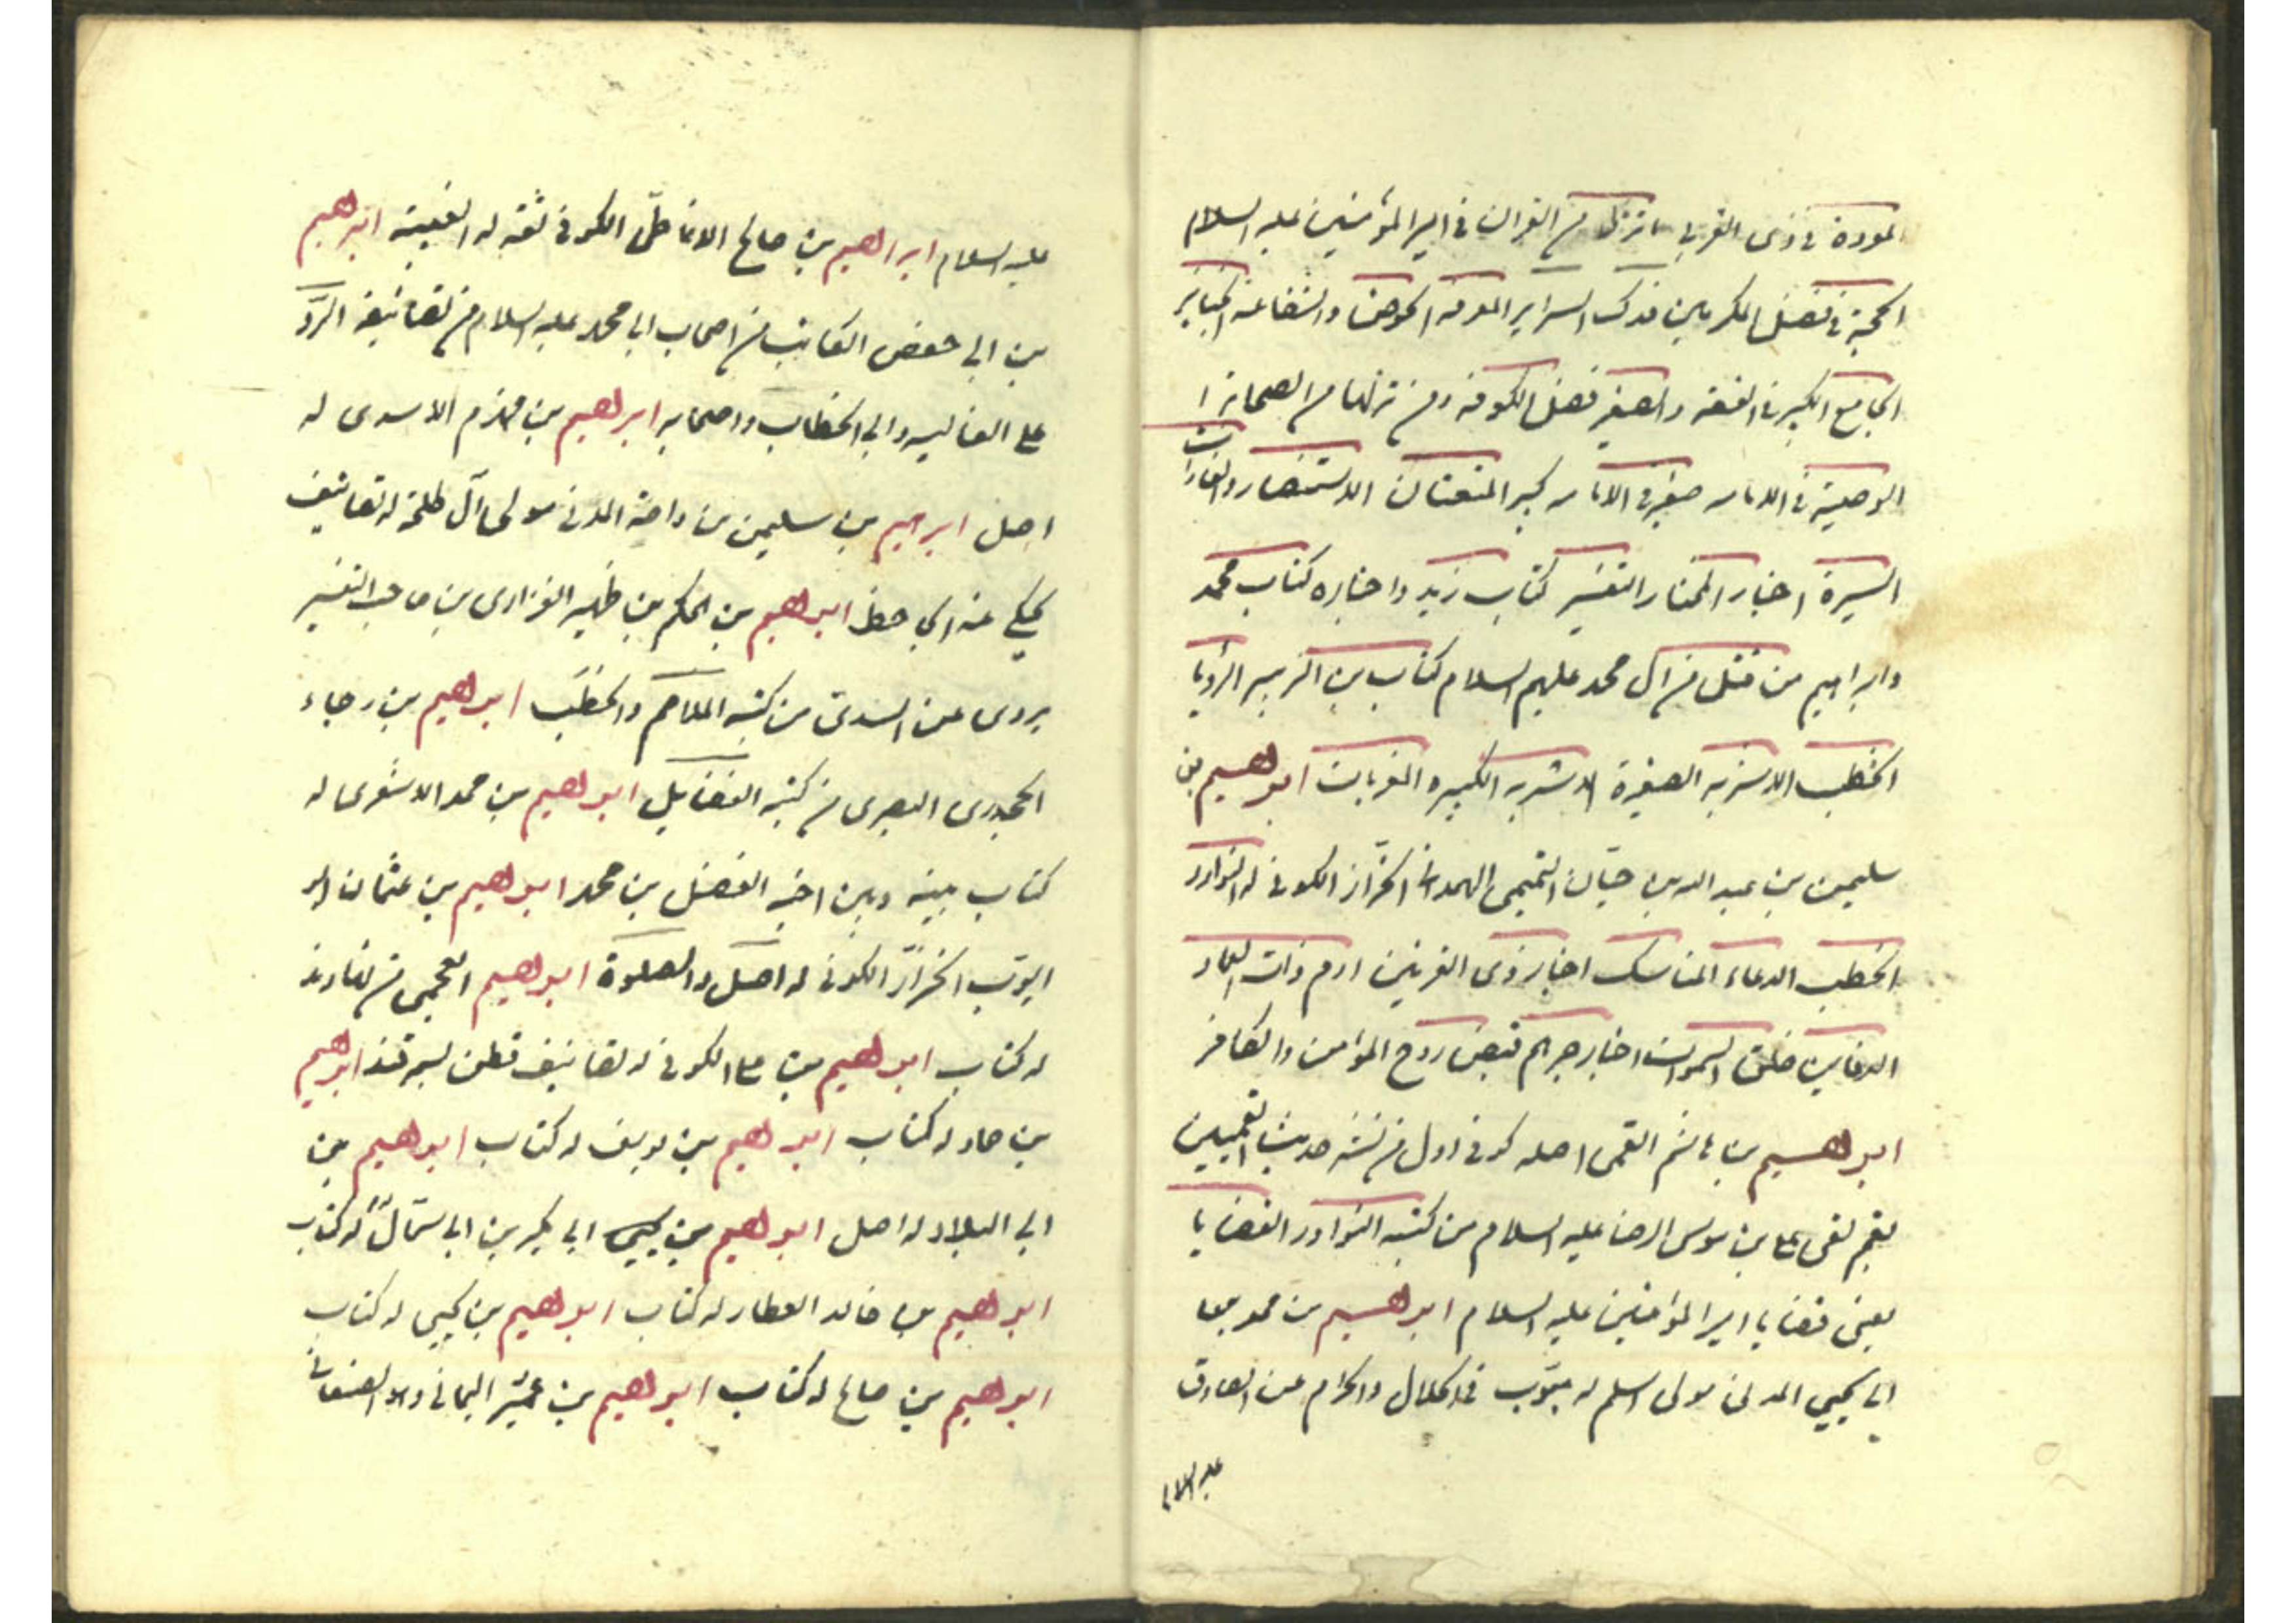 المودة في ذوى القربى ما نزل من القران في امير المؤمنين عليه السلام
الحجة في فضل المكرمين فدك السراير المعرفه الحوض والشفاعة الجنايز
الجامع الكبير في الفقه والصغير فضل الكوفه ومن نزلها من الصحابة ا
الوصية في الامامه صغير في الامامه كبير المتعتان الاستنصار والغارات
السيرة اخبار المختار التفسير كتاب زيد واخباره كتاب محمد
وابراهيم من قتل من ال محمد عليهم السلام كتاب بن الزبير الرؤيا
الخطب الاشربه الصغيرة الاشربه الكبيره المغربات ابرهيم بن
سليمن بن عبد الله بن حيّان التميمى الهمدانى الخزّاز الكوفى له النوادر
الخطب الدعاء المناسك اخبار ذوى القرنين ارم ذات العماد
الدفاين خلق السموات اخبار جرهم قبض روح المؤمن والكافر
ابرهيم بن هاشم القمى اصله كوفى اول من نشر حديث القميين
بقم لقى على بن موسى الرضا عليه السلام من كتبه النوادر القضايا
يعنى قضايا امير المؤمنين عليه السلام ابرهيم بن محمد بن
ابى يحيى المدنى مولى اسلم له مبوّب فى الحلال والحرام عن الصادق
عليه السلام
عليه السلام ابرهيم بن صالح الانماطىّ الكوفى ثقه له الغيبة ابرهيم
بن ابى حفص الكاتب من اصحاب ابى محمد عليه السلام من تصانيفه الردّ
على الغاليه وابى الخطاب واصحابه ابرهيم بن مهزم الاسدى له
اصل ابرهيم بن سليمن بن داحة المدنى مولى آل طلحة له تصانيف
يحكى عنه الجاحظ ابرهيم بن الحكم بن ظهير الفزارى بن صاحب التفسير
يروى عن السدى من كتبه الملاحم والخطب ابرهيم بن رجاء
الجحدرى البصرى من كتبه الفضايل ابرهيم بن محمد الاشعرى له
كتاب بينه وبين اخيه الفضل بن محمد ابرهيم بن عثمان ابو
ايوب الخزّاز الكوفى له اصل والصلوة ابرهيم العجمى من نهاوند
له كتاب ابرهيم بن على الكوفى له تصانيف قطن بسمرقند ابرهيم
بن حماد له كتاب ابرهيم بن يوسف له كتاب ابرهيم بن
ابى البلاد له اصل ابرهيم بن ابى بكر بن ابى سمّال له كتاب
ابرهيم بن خالد العطار له كتاب ابرهيم بن يحيى له كتاب
ابرهيم بن صالح له كتاب ابرهيم بن عمر اليمانى وهو الصنعانى